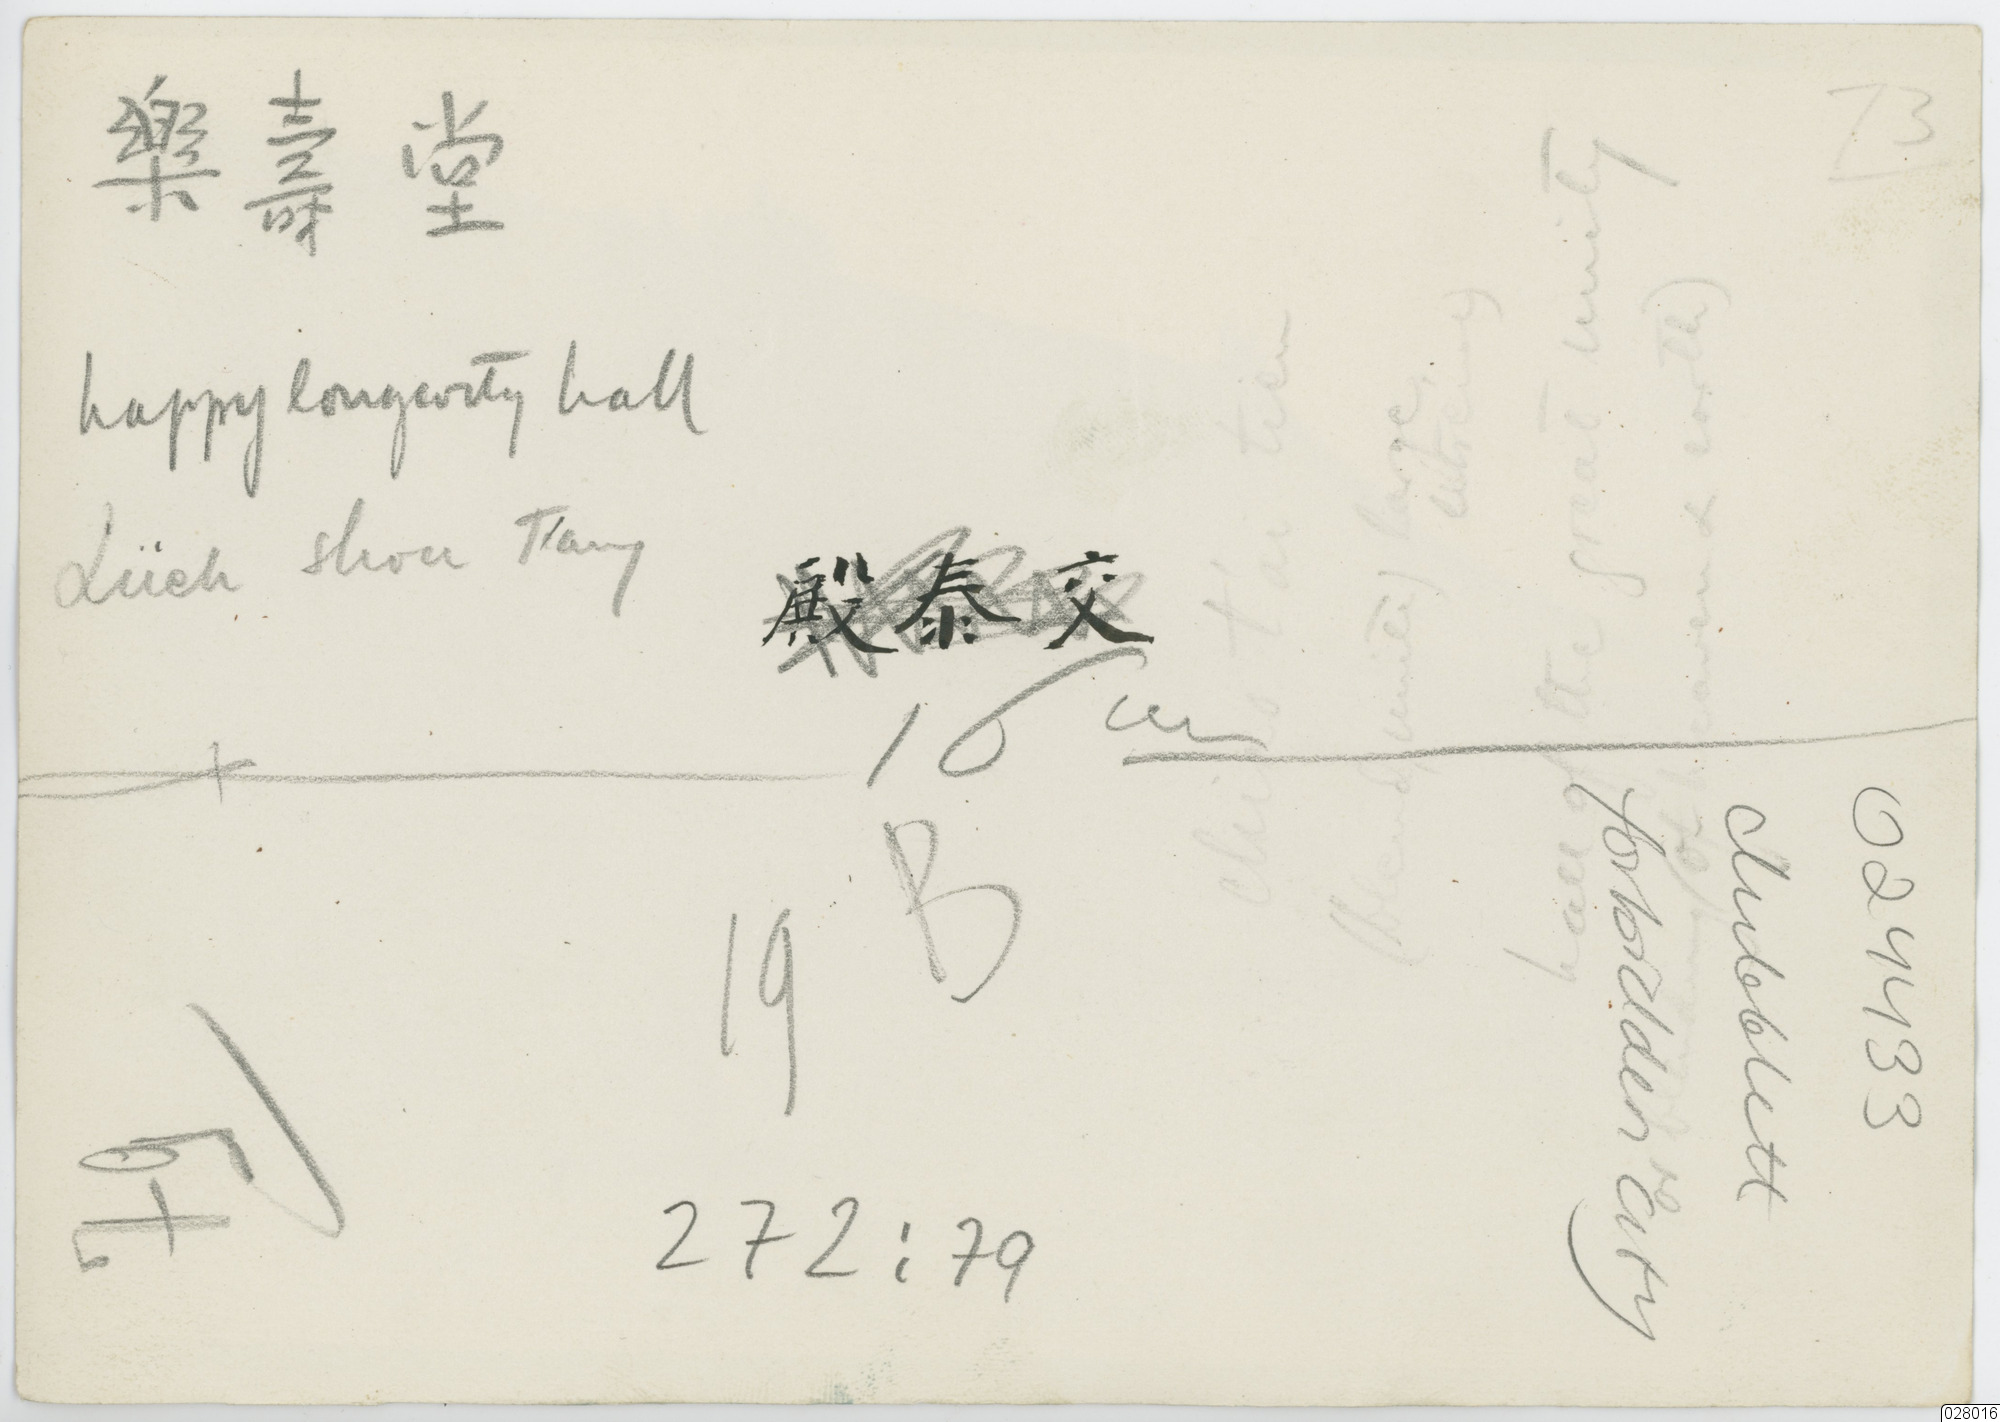 樂壽堂
happy longevity hall
Lüeh shou T'ang
殿泰交
16 cm
B
19
272:79
73
chiao t'ai tien
hall of the great unity
of heaven and earth)
024433
Chubblett
forbidden city
028016